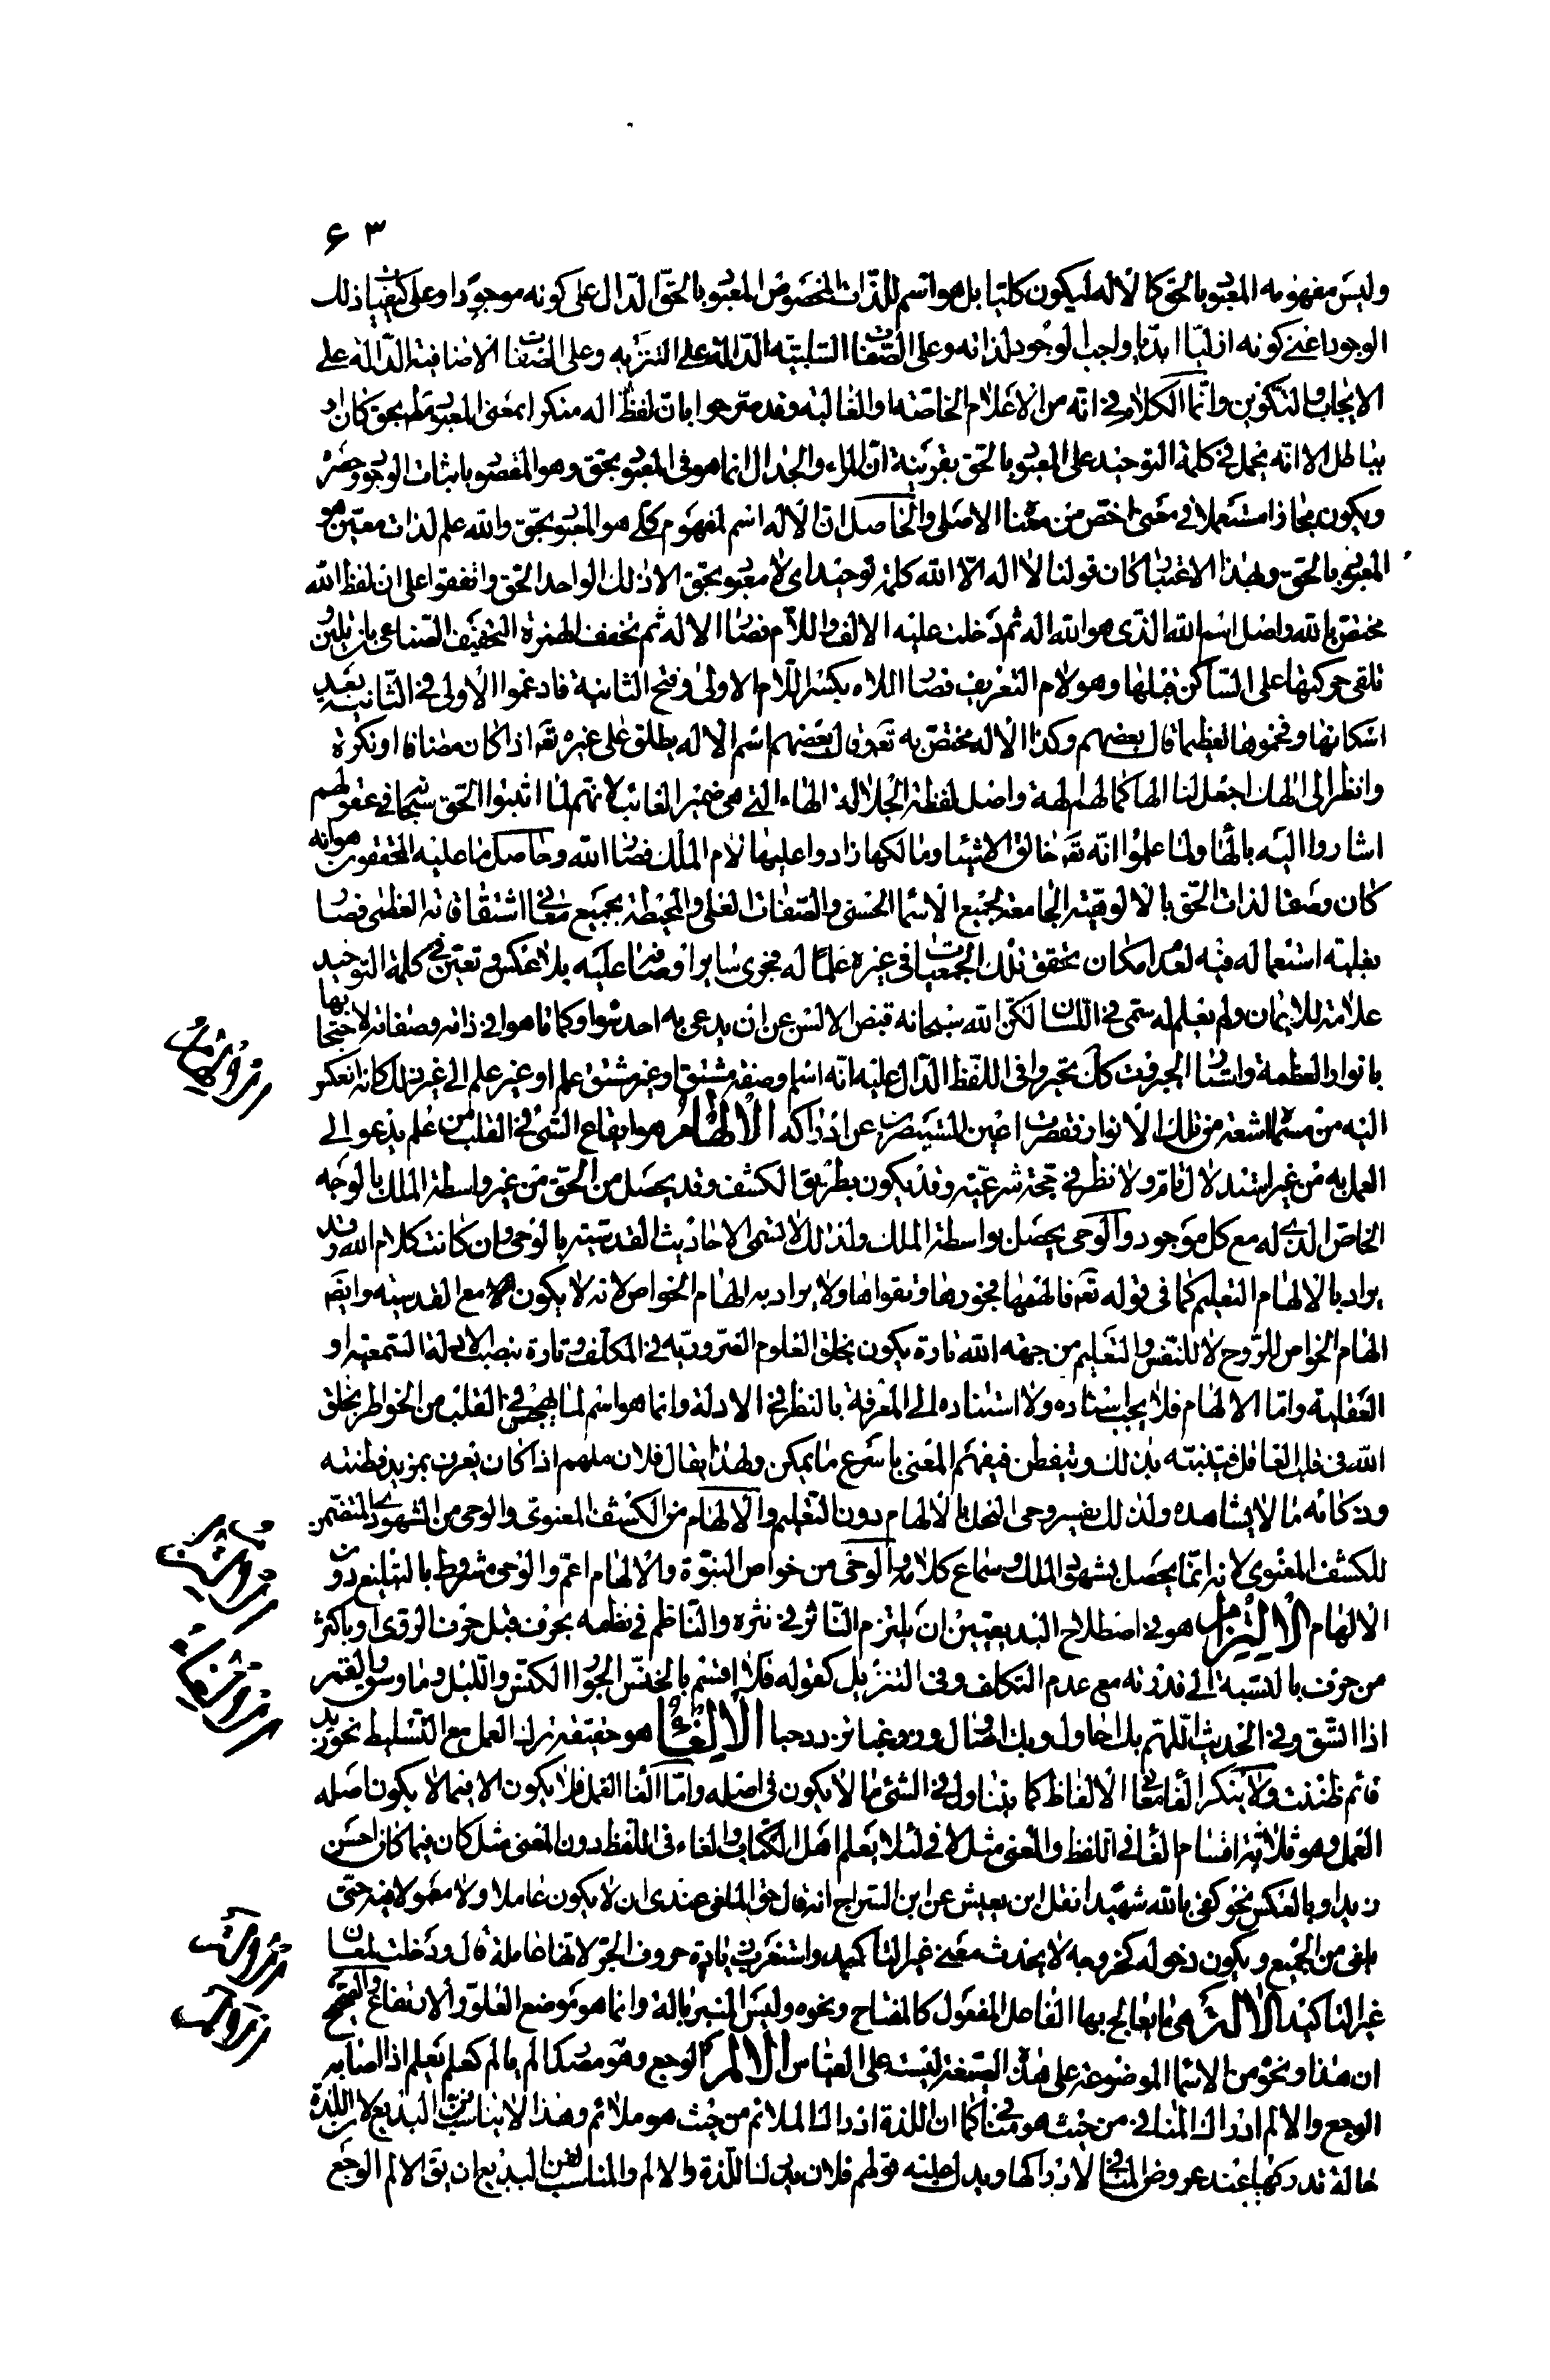 ٦٣
وليس مفهومه المعبود بالحق كالاله ليكون كليا بل هو اسم للذات المخصوص المعبود بالحق الدال على كونه موجودا وعلى كيفيات ذلك
الوجود اعنى كونه ازليا ابديا واجب الوجود لذاته وعلى الصفات السلبيته الدالة على التنزيه وعلى الصفات الاضافية الدالة على
الايجاد والتكوين وانما الكلام فى انه من الاعلام الخاصة او الغالبة وقد صرحوا بان لفظ اله منكرا بمعنى المعبود مطلقا بحق كان او
بباطل الا انه يحمل فى كلمة التوحيد على المعبود بالحق بقرينة ان المراء والجدال انما هو فى المعبود بحق وهو المقصود باثبات الوجود وحصره
ويكون مجازا مستعملا فى معنى اخص من معناه الاصلى والحاصل ان الاله اسم لمفهوم كلى هو المعبود بحق والله علم لذات معين هو
المعبود بالحق وبهذا الاعتبار كان قولنا لا اله الا الله كلمة توحيد اى لا معبود بحق الا ذلك الواحد الحق واتفقوا على ان لفظ الله
مختص بالله واصل اسم الله الذى هو الله اله ثم دخلت عليه الالف واللام فصار الاله ثم تخفف الهمزة التخفيف الصناعى بان تلين و
تلقى حركتها على الساكن قبلها وهو لام التعريف فصار اللاه بكسر اللام الاولى وفتح الثانية فادغموا الاولى فى الثانية بعد
اسكانها وفخموها تعظيما قال بعضهم وكذا الاله مختص به تع وقال بعضهم اسم الاله يطلق على غيره تع اذا كان مضافا او نكرة
وانظر الى الهك اجعل لنا الها كما لهم الهة واصل لفظة الجلالة الهاء التى هى ضمير الغائب لانهم لما اثبتوا الحق سبحانه فى عقولهم
اشاروا اليه بالهاء ولما علموا انه تع خالق الاشياء ومالكها زادوا عليها لام الملك فصار الله وحاصل ما عليه المحققون هو انه
كان وصفا لذات الحق بالالوهية الجامعة لجميع الاسماء الحسنى والصفات العلى والمحيطة بجميع معانى اشتقاقاته العظمى فصار
بغلبة استعماله فيه لعدم امكان تحقق تلك الجمعيات فى غيره علما له فجرى ساير اوصافه عليه بلا عكس وتعين فى كلمة التوحيد
علامة للايمان ولم يعلم له سمى فى اللسان لكن الله سبحانه قبض الالسن عن ان يدعى به احد سواه وكما تاهوا فى ذاته وصفاته لاحتجابها
بانوار العظمة واستار الجبروت كك تحيروا فى اللفظ الدال عليه انه اسم او صفة مشتق او غير مشتق علم او غير علم الى غير ذلك كانه انعكس
اليه من مسماه اشعة من تلك الانوار فقصرت اعين المستبصرين عن ادراكه الالهام هو ايقاع الشئ فى القلب من علم يدعو الى
العمل به من غير استدلال تام ولا نظر فى حجة شرعية وقد يكون بطريق الكشف وقد يحصل من الحق من غير واسطة الملك بالوجه
الخاص الذى له مع كل موجود والوحى يحصل بواسطة الملك ولذلك لا تسمى الاحاديث القدسية بالوحى وان كانت كلام الله وقد
يراد بالالهام التعليم كما فى قوله تع فالهمها فجورها وتقواها ولا يراد به الهام الخواص لانه لا يكون الا مع القدسية وايضا
الهام الخواص للروح لا للنفس والتعليم من جهة الله تارة يكون بخلق العلوم الضرورية فى المكلف وتارة بنصب الادلة السمعية او
العقلية واما الالهام فلا يجب اسناده ولا استناده الى المعرفة بالنظر فى الادلة وانما هو اسم لما يهجس فى القلب من الخواطر بخلق
الله فى قلب الغافل فيتنبه بذلك ويتفطن فيفهم المعنى باسرع ما يمكن ولهذا يقال فلان ملهم اذا كان يعرف بمزيد فطنته
وذكائه ما لا يشاهده ولذلك يفسر وحى النحل بالالهام دون التعليم والالهام من الكشف المعنوى والوحى من الشهودى المتضمن
للكشف المعنوى لانه انما يحصل بشهود الملك وسماع كلامه والوحى من خواص النبوة والالهام اعم والوحى مشروط بالتبليغ دون
الالهام الالتزام هو فى اصطلاح البديعيين ان يلتزم الناثر فى نثره والناظم فى نظمه بحرف قبل حرف الروى او باكثر
من حرف بالنسبة الى قدرته مع عدم التكلف وفى التنزيل كقوله فلا اقسم بالخنس الجوار الكنس والليل وما وسق والقمر
اذا اتسق وفى الحديث اللهم بك احاول وبك اصاول وزر غبا تزدد حبا الالغاء هو حقيقة ترك العمل مع التسليط نحو زيد
قائم ظننت ولا ينكر الغاء معانى الالفاظ كما يتناول فى الشئ ما لا يكون فى اصله واما الغاء العمل فلا يكون الا فيما لا يكون اصله
العمل وهو ثلاثة اقسام الغاء فى اللفظ والمعنى مثل لا فى لئلا يعلم اهل الكتاب والغاء فى اللفظ دون المعنى مثل كان فيما كان احسن
زيدا وبالعكس نحو كفى بالله شهيدا نقل ابن يعيش عن ابن السراج انه قال حق الملغى عندى ان لا يكون عاملا ولا معمولا فيه حتى
يلغى من الجميع ويكون دخوله كخروجه لا يحدث معنى غير التاكيد واستغرب زيادة حروف الجر لانها عاملة قال ودخلت لمعان
غير التاكيد الالة هى ما يعالج بها الفاعل المفعول كالمفتاح ونحوه وليس المنبر بالة وانما هو موضع العلو والارتفاع والصحيح
ان هذا ونحوه من الاسماء الموضوعة على هذه الصيغة ليست على القياس الالم الوجع وهو مصدر الم يالم كعلم يعلم اذا اصابه
الوجع والالم ادراك المنافى من حيث هو مناف كما ان اللذة ادراك الملائم من حيث هو ملائم وهذا لا يناسب فن البديع لان اللذة
حالة تدركها عند عروض المنافى لا ادراكها ويدل عليه قولهم فلان يدرك اللذة والالم والمناسب لفن البديع ان يق الالم الوجع